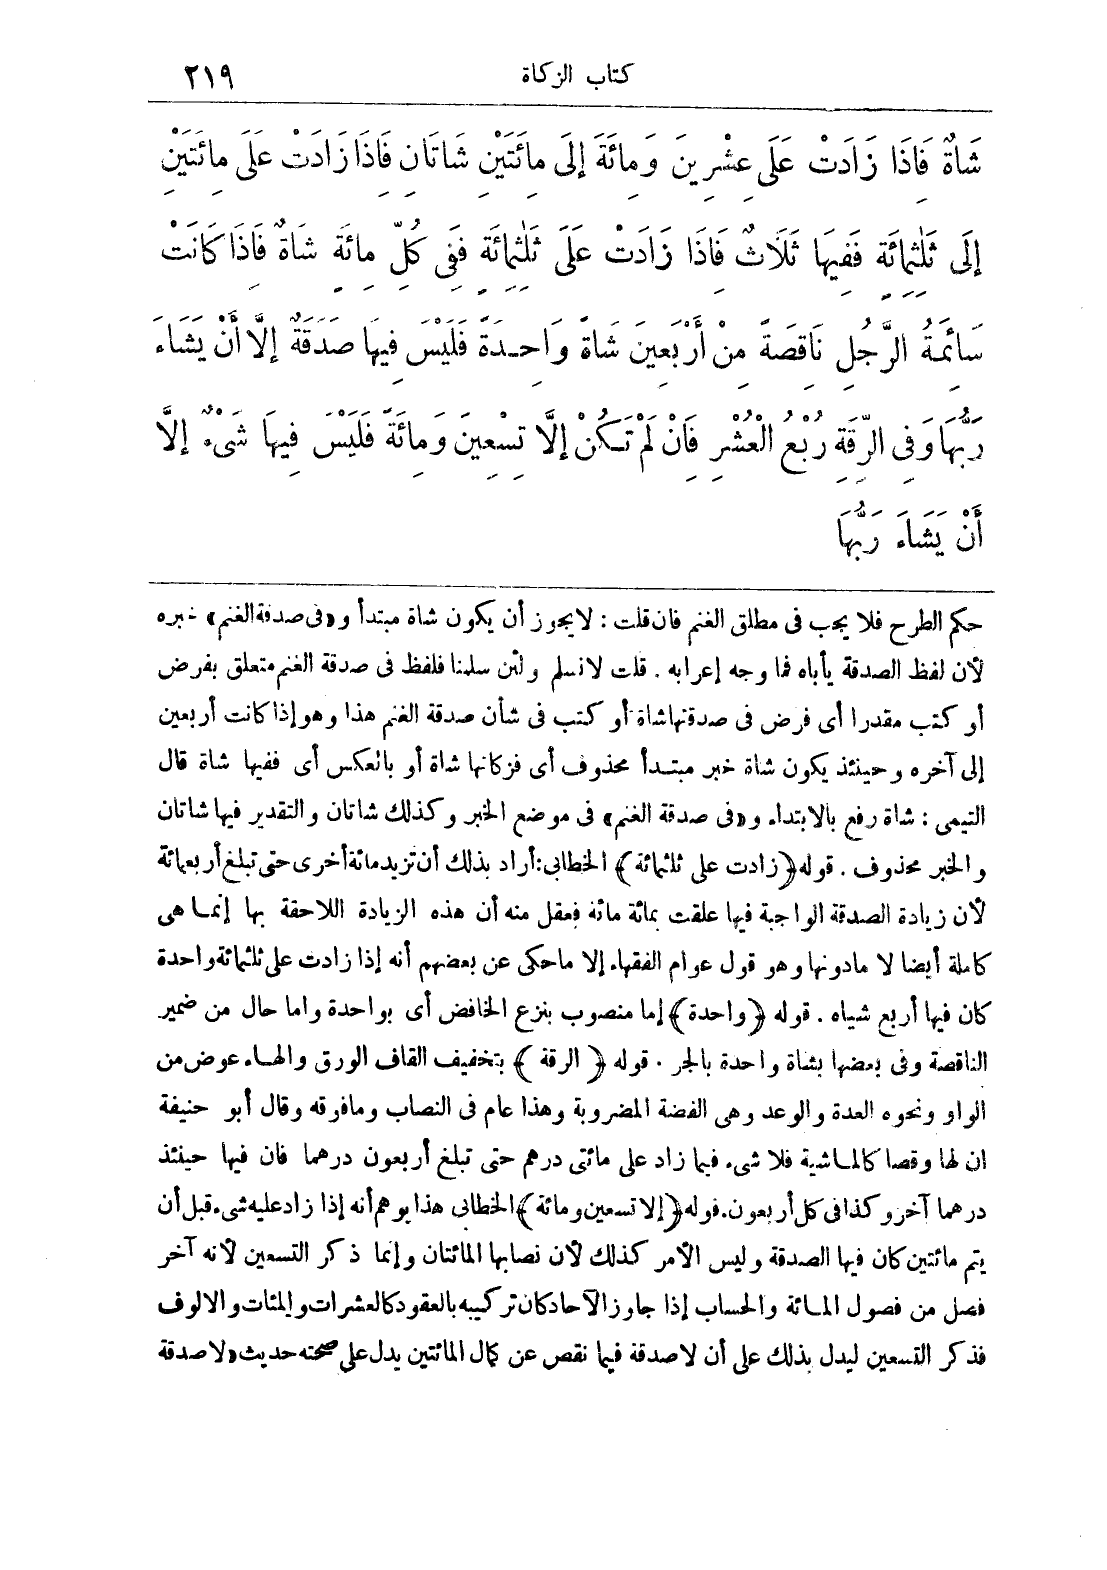 كتاب الزكاة ٢١٩
شَاةٌ فَاذَا زَادَتْ عَلَى عِشْرِينَ وَمِائَةَ إلَى مِائَتَيْنِ شَاتَانِ فَاِذَا زَادَتْ عَلَى مِائَتَيْنِ
إلَى ثَلَٰثِمِائَةٍ فَفِيهَا ثَلَاثٌ فَاِذَا زَادَتْ عَلَى ثَلَٰثِمِائَةٍ فَفِى كُلِّ مِائَةٍ شَاةٌ فَاِذَا كَانَتْ
سَائِمَةُ الرَّجُلِ نَاقِصَةً مِنْ أَرْبَعِينَ شَاةً وَاحِدَةً فَلَيْسَ فِيهَا صَدَقَةٌ إلَّا أَنْ يَشَاءَ
رَبُّهَا وَفِى الرِّقَةِ رُبْعُ الْعُشْرِ فَاِنْ لَمْ تَكُنْ إلَّا تِسْعِينَ وَمِائَةً فَلَيْسَ فِيهَا شَىْءٌ إلَّا
أَنْ يَشَاءَ رَبُّهَا
حكم الطرح فلا يجب فى مطلق الغنم فان قلت : لا يجوز أن يكون شاة مبتدأ و«فى صدقة الغنم» خبره
لأن لفظ الصدقة يأباه فما وجه إعرابه . قلت لا نسلم ولئن سلمنا فلفظ فى صدقة الغنم متعلق بفرض
أو كتب مقدرا أى فرض فى صدقتها شاة أو كتب فى شأن صدقة الغنم هذا وهو إذا كانت أربعين
إلى آخره وحينئذ يكون شاة خبر مبتدأ محذوف أى فزكاتها شاة أو بالعكس أى ففيها شاة قال
التيمى : شاة رفع بالابتداء و«فى صدقة الغنم» فى موضع الخبر وكذلك شاتان والتقدير فيها شاتان
والخبر محذوف . قوله ﴿زادت على ثلثمائة﴾ الخطابى: أراد بذلك أن تزيد مائة أخرى حتى تبلغ أربعمائة
لأن زيادة الصدقة الواجبة فيها علقت بمائة مائة فعقل منه أن هذه الزيادة اللاحقة بها إنما هى
كاملة أيضا لا مادونها وهو قول عوام الفقهاء إلا ماحكى عن بعضهم أنه إذا زادت على ثلثمائة واحدة
كان فيها أربع شياه . قوله ﴿واحدة﴾ إما منصوب بنزع الخافض أى بواحدة واما حال من ضمير
الناقصة وفى بعضها بشاة واحدة بالجر . قوله ﴿الرقة﴾ بتخفيف القاف الورق والهاء عوض من
الواو ونحوه العدة والوعد وهى الفضة المضروبة وهذا عام فى النصاب ومافوقه وقال أبو حنيفة
ان لها وقصا كالماشية فلا شىء فيما زاد على مائتى درهم حتى تبلغ أربعون درهما فان فيها حينئذ
درهما آخر وكذا فى كل أربعون. قوله ﴿إلا تسعين ومائة﴾ الخطابى هذا يوهم أنه إذا زاد عليه شىء قبل أن
يتم مائتين كان فيها الصدقة وليس الأمر كذلك لأن نصابها المائتان وإنما ذكر التسعين لأنه آخر
فصل من فصول المائة والحساب إذا جاوز الآحاد كان تركيبه بالعقود كالعشرات والمئات والالوف
فذكر التسعين ليدل بذلك على أن لا صدقة فيما نقص عن كمال المائتين يدل على صحته حديث «لا صدقة